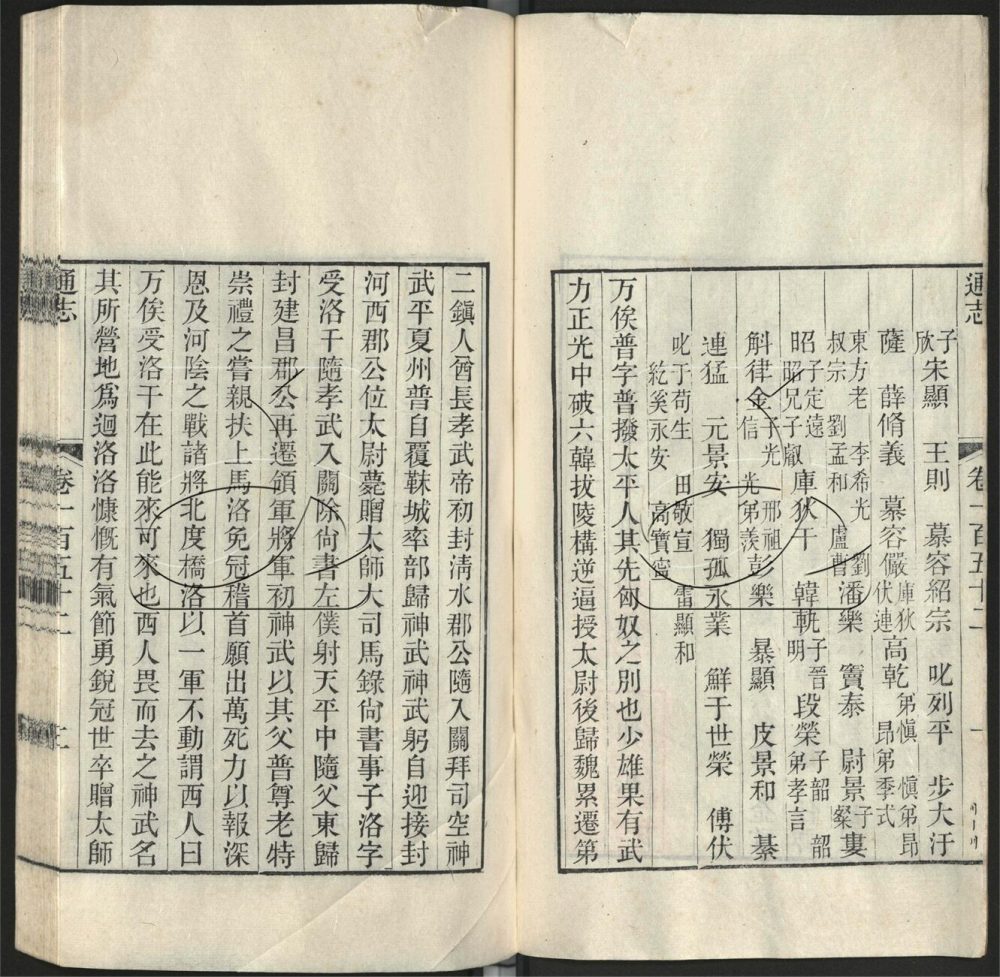 通志 卷一百五十二 一
子欣 宋顯 王則 慕容紹宗 叱列平 步大汗
薩 薛脩義 慕容儼 庫狄伏連 高乾 弟愼 愼弟昂 昂弟季式
東方老 李希光 劉叔宗 劉孟和 盧曹 潘樂 竇泰 尉景 子粲 婁
昭 兄子定遠 昭兄子叡 庫狄干 韓軌 子晉明 段榮 子韶 韶弟孝言
斛律金 子光 光弟羨 邢祖信 彭樂 暴顯 皮景和 綦
連猛 元景安 獨孤永業 鮮于世榮 傅伏
叱于苟生 田敬宣 雷顯和
紇奚永安 高寶寧
万俟普字普撥太平人其先匈奴之別也少雄果有武
力正光中破六韓拔陵構逆逼授太尉後歸魏累遷第
二鎭人酋長孝武帝初封淸水郡公隨入關拜司空神
武平夏州普自覆靺城率部歸神武神武躬自迎接封
河西郡公位太尉薨贈太師大司馬錄尙書事子洛字
受洛干隨孝武入關除尙書左僕射天平中隨父東歸
封建昌郡公再遷領軍將軍初神武以其父普尊老特
崇禮之嘗親扶上馬洛免冠稽首願出萬死力以報深
恩及河陰之戰諸將北度橋洛以一軍不動謂西人曰
万俟受洛干在此能來可來也西人畏而去之神武名
其所營地爲迴洛洛慷慨有氣節勇銳冠世卒贈太師
通志 卷一百五十二 二